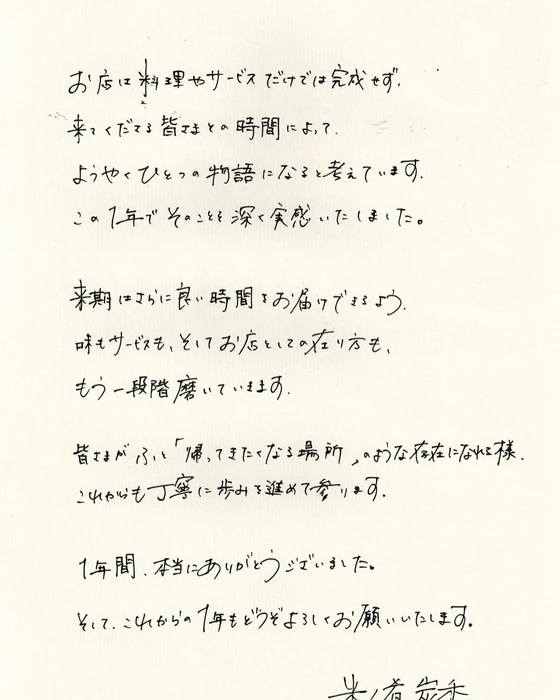 お店は料理やサービスだけでは完成せず、
来てくださる皆さまとの時間によって、
ようやくひとつの物語になると考えています。
この1年でそのことを深く実感いたしました。
来期はさらに良い時間をお届けできるよう、
味もサービスも、そしてお店としての在り方も、
もう一段階磨いていきます。
皆さまがふと「帰ってきたくなる場所」のような存在になれる様、
これからも丁寧に歩みを進めて参ります。
1年間、本当にありがとうございました。
そして、これからの1年もどうぞよろしくお願いいたします。